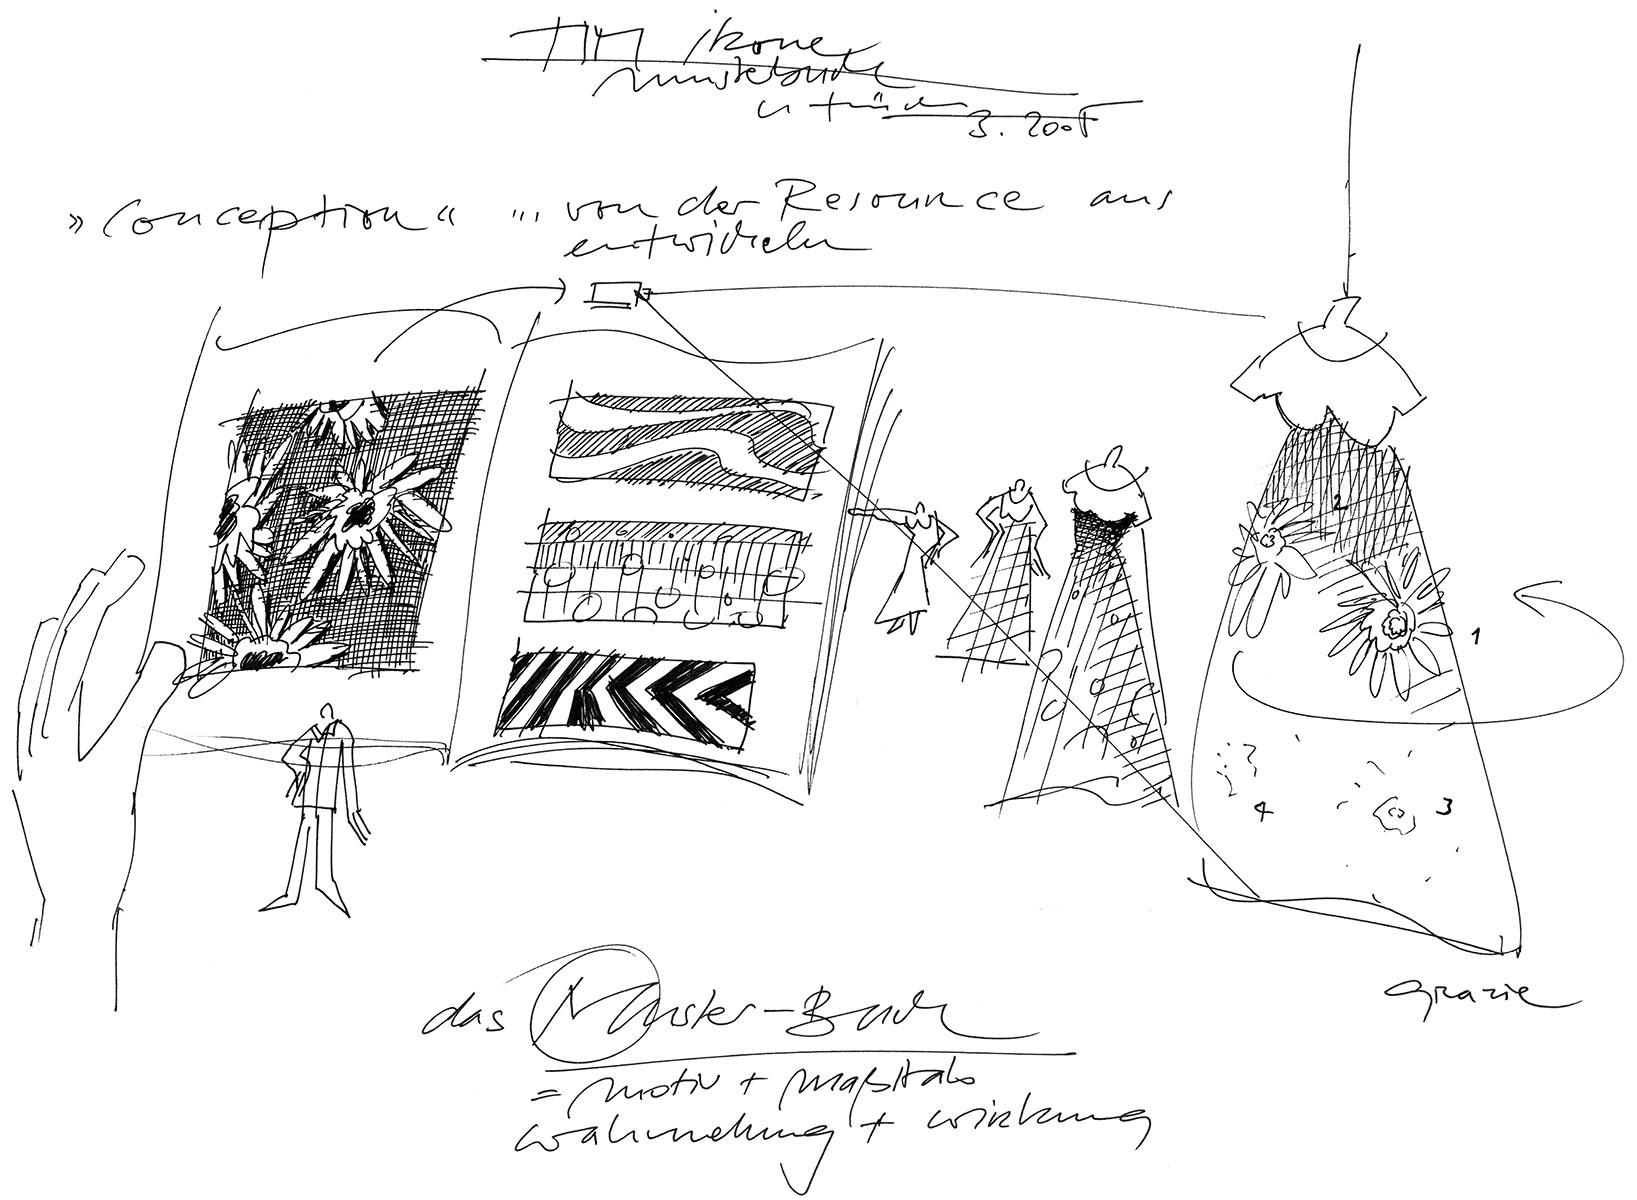 TIM ikone
musterbuch
3. 2008
»Conception« ... von der Resource aus
entwickeln
2
1
3
4
Grazie
das Muster-Buch
= motiv + maßstab
wahrnehmung + wirkung